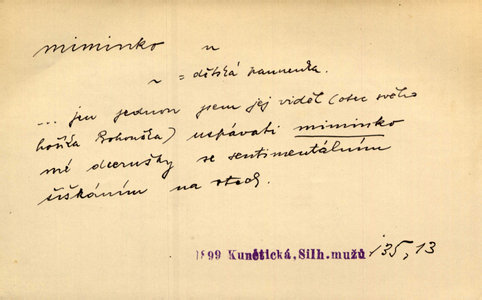 miminko n
~ = dětská panenka.
... jen jednou jsem jej viděl (otec svého
hoška Bohouška) uspávati miminko
mé dcerušky se sentimentálním
šiškáním na rtech.
1899 Kunětická, Silh. mužů 135, 13